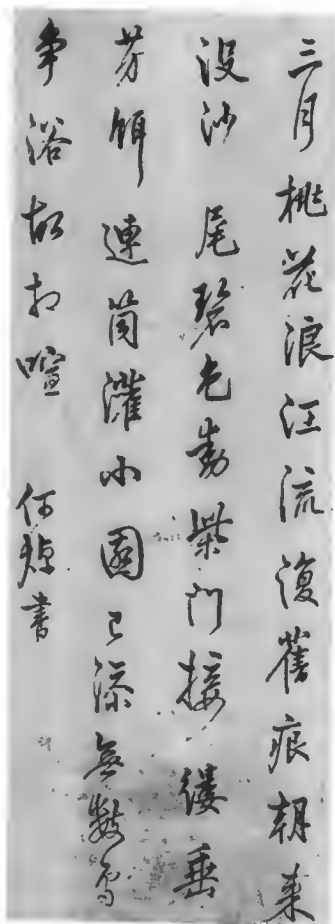 三月桃花浪江流復舊痕朝来
没沙尾碧色動柴門接縷垂
芳餌連筒灌小園已添無數鳥
争浴故相喧 何焯書